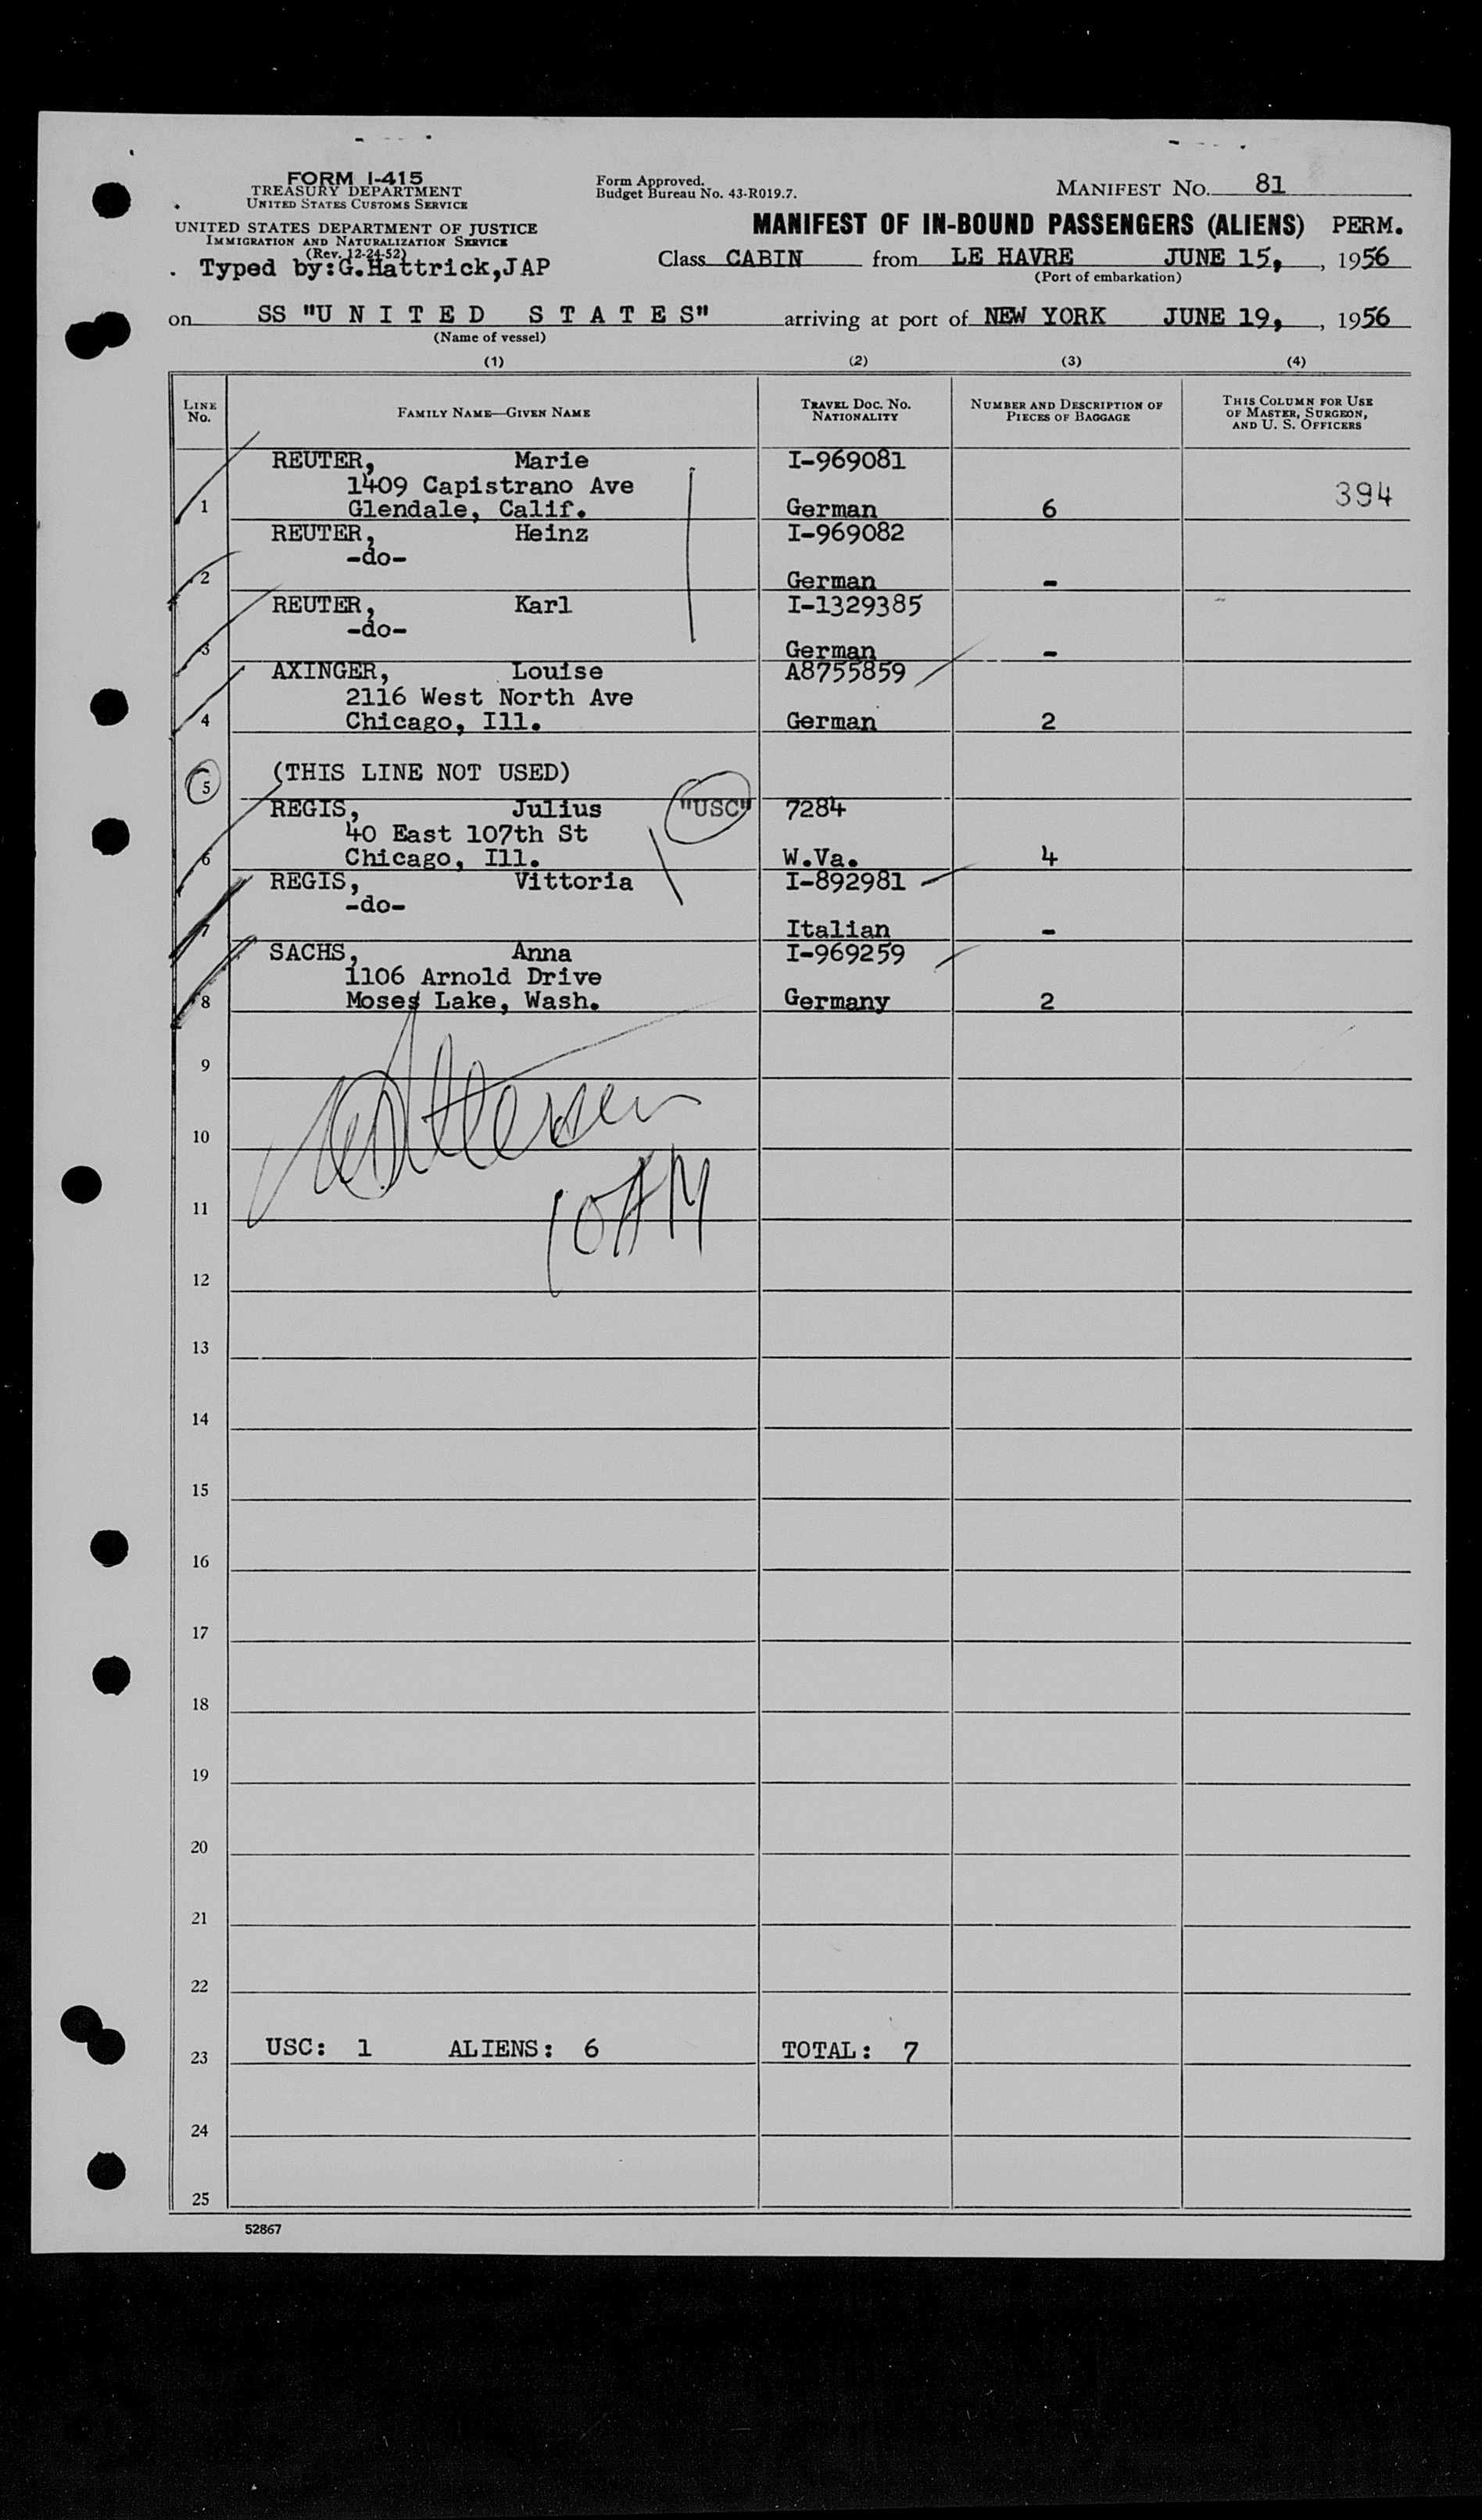 FORM I-415
TREASURY DEPARTMENT
UNITED STATES CUSTOMS SERVICE
Form Approved.
Budget Bureau No. 43-R019.7.
MANIFEST No. 81
UNITED STATES DEPARTMENT OF JUSTICE
IMMIGRATION AND NATURALIZATION SERVICE
(Rev. 12-24-52)
MANIFEST OF IN-BOUND PASSENGERS (ALIENS) PERM.
. Typed by:G.Hattrick,JAP
Class CABIN from LE HAVRE JUNE 15, , 1956
(Port of embarkation)
on SS "U N I T E D S T A T E S" arriving at port of NEW YORK JUNE 19, , 1956
(Name of vessel)
(1) (2) (3) (4)
LINE No. FAMILY NAME—GIVEN NAME TRAVEL DOC. NO. NATIONALITY NUMBER AND DESCRIPTION OF PIECES OF BAGGAGE THIS COLUMN FOR USE OF MASTER, SURGEON, AND U. S. OFFICERS
REUTER, Marie I-969081
1409 Capistrano Ave 394
1 Glendale, Calif. German 6
REUTER, Heinz I-969082
-do-
2 German -
REUTER, Karl I-1329385
-do-
3 German -
AXINGER, Louise A8755859
2116 West North Ave
4 Chicago, Ill. German 2
5 (THIS LINE NOT USED)
REGIS, Julius "USC" 7284
40 East 107th St
6 Chicago, Ill. W.Va. 4
REGIS, Vittoria I-892981
-do-
7 Italian -
SACHS, Anna I-969259
1106 Arnold Drive
8 Moses Lake, Wash. Germany 2
9
10
10AM
11
12
13
14
15
16
17
18
19
20
21
22
23 USC: 1 ALIENS: 6 TOTAL: 7
24
25
52867